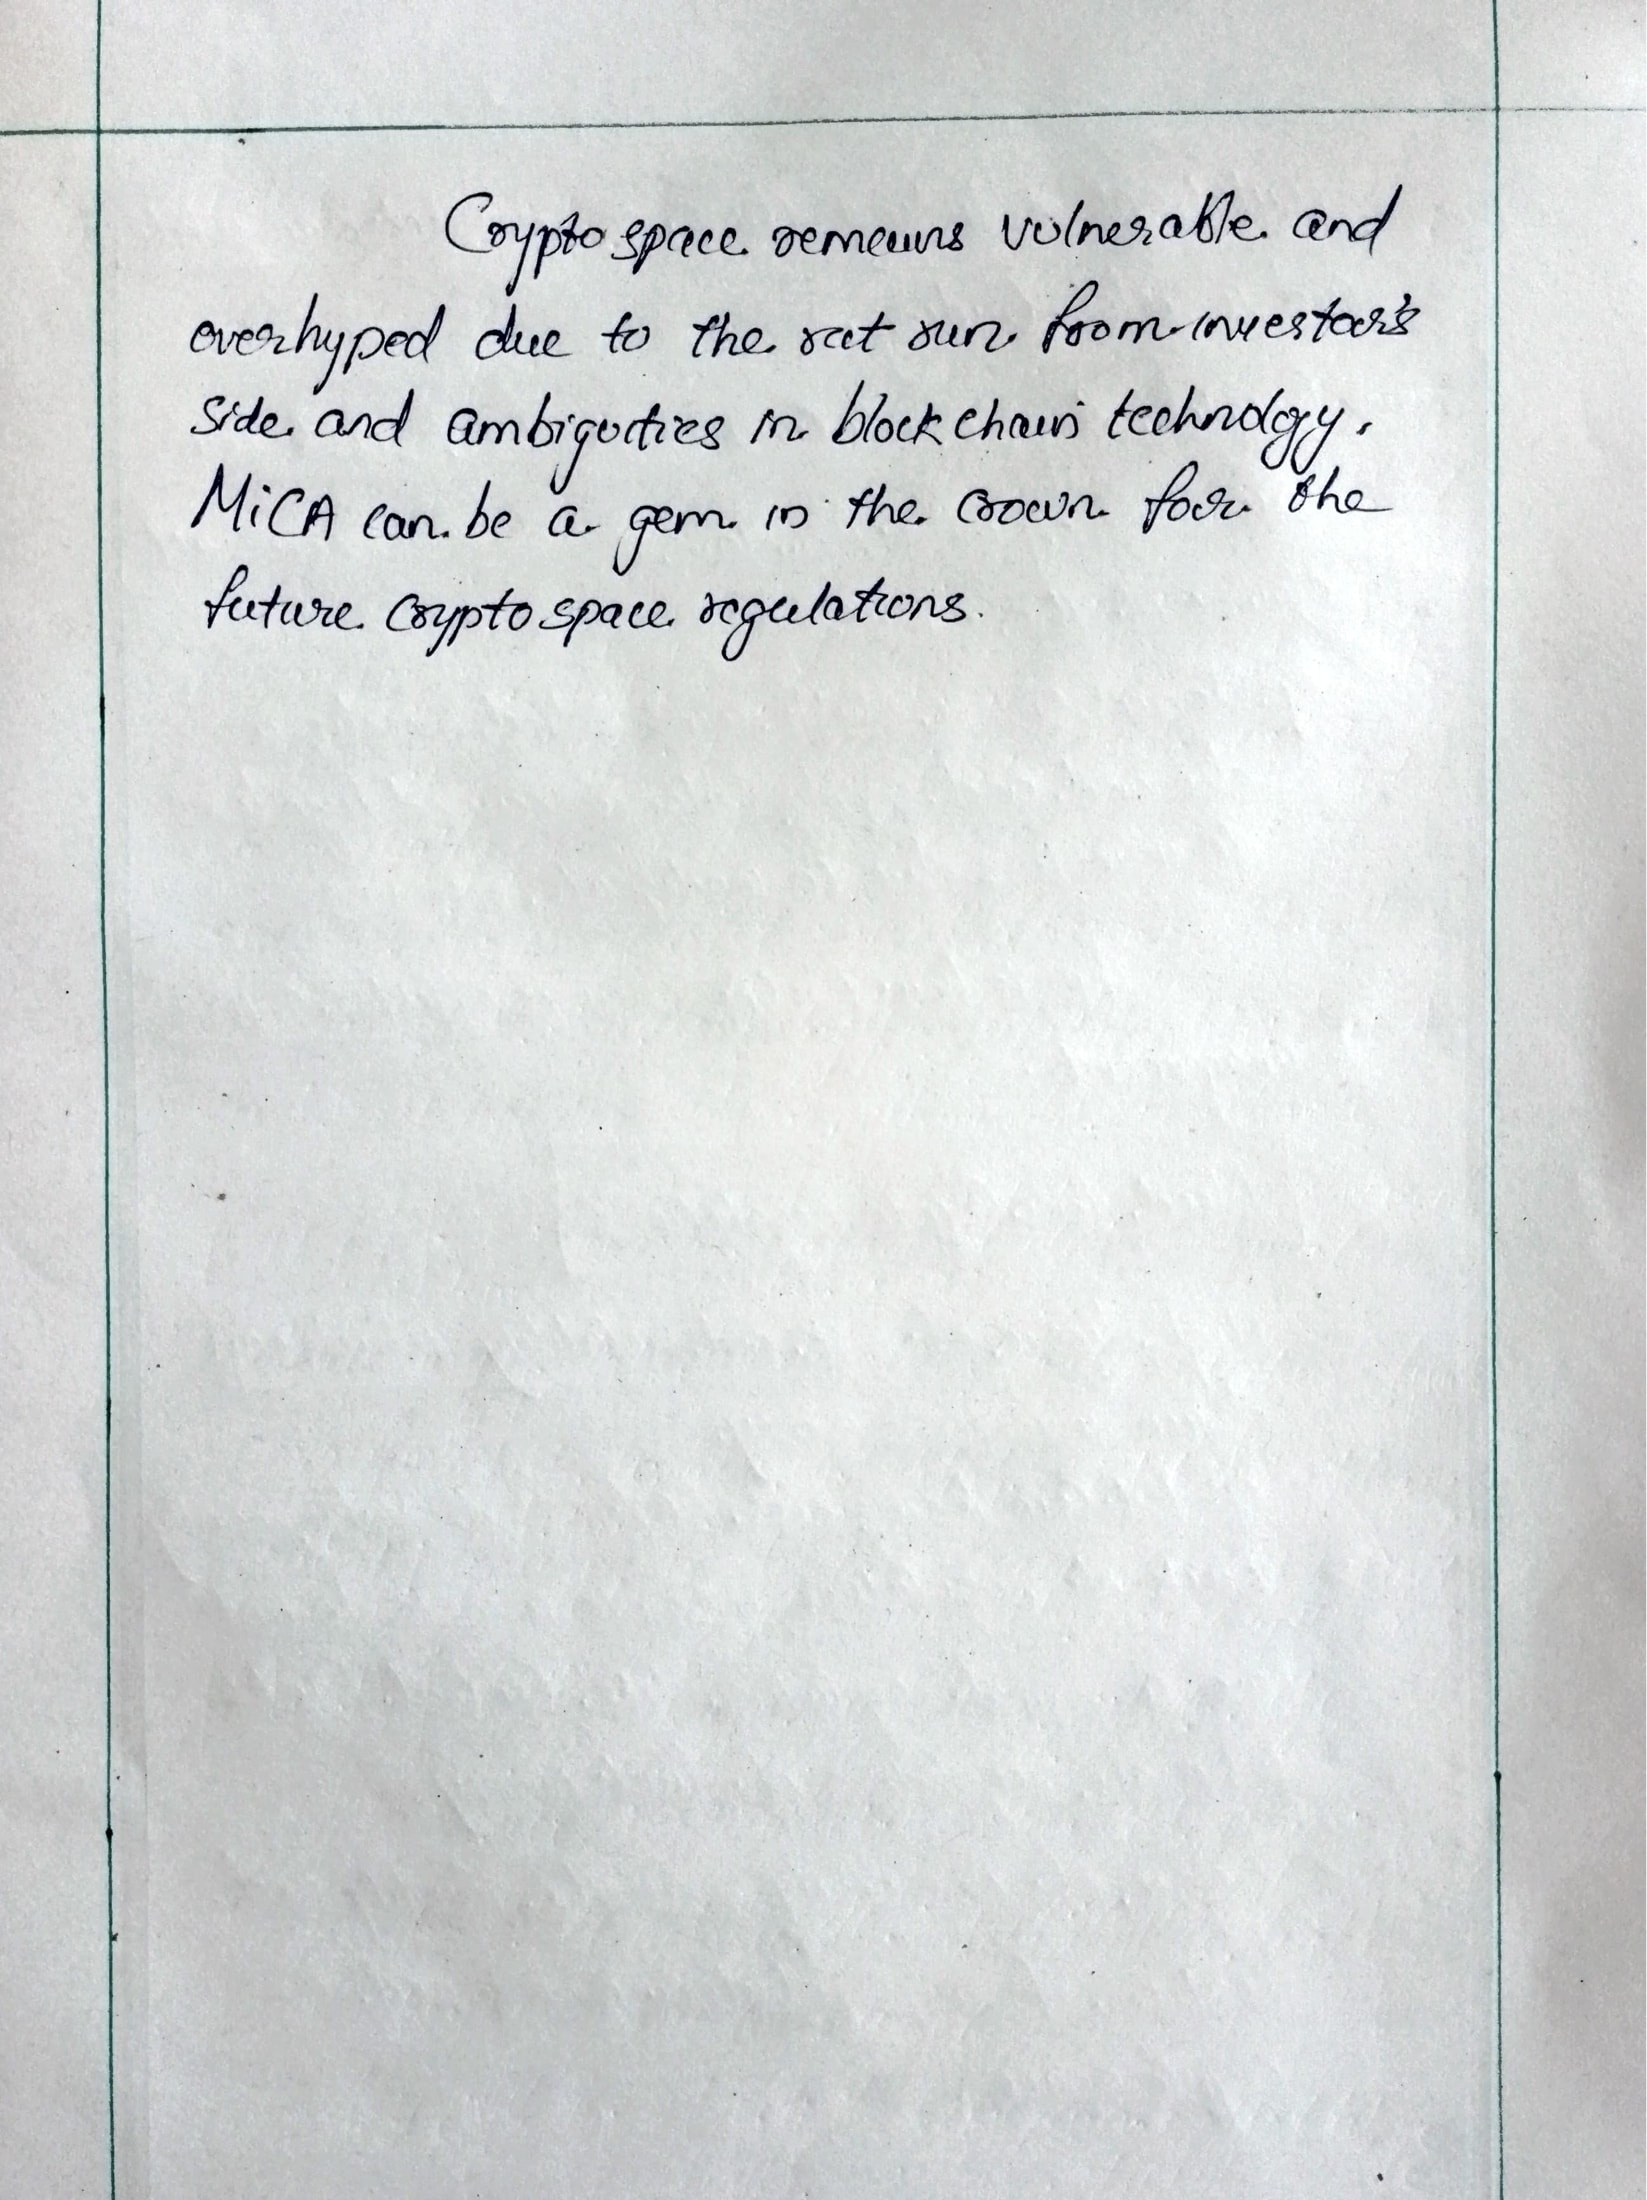 Crypto space remains vulnerable and
overhyped due to the rat run from investor's
side and ambiguties in blockchain technology.
MiCA can be a gem in the crown for the
future crypto space regulations.